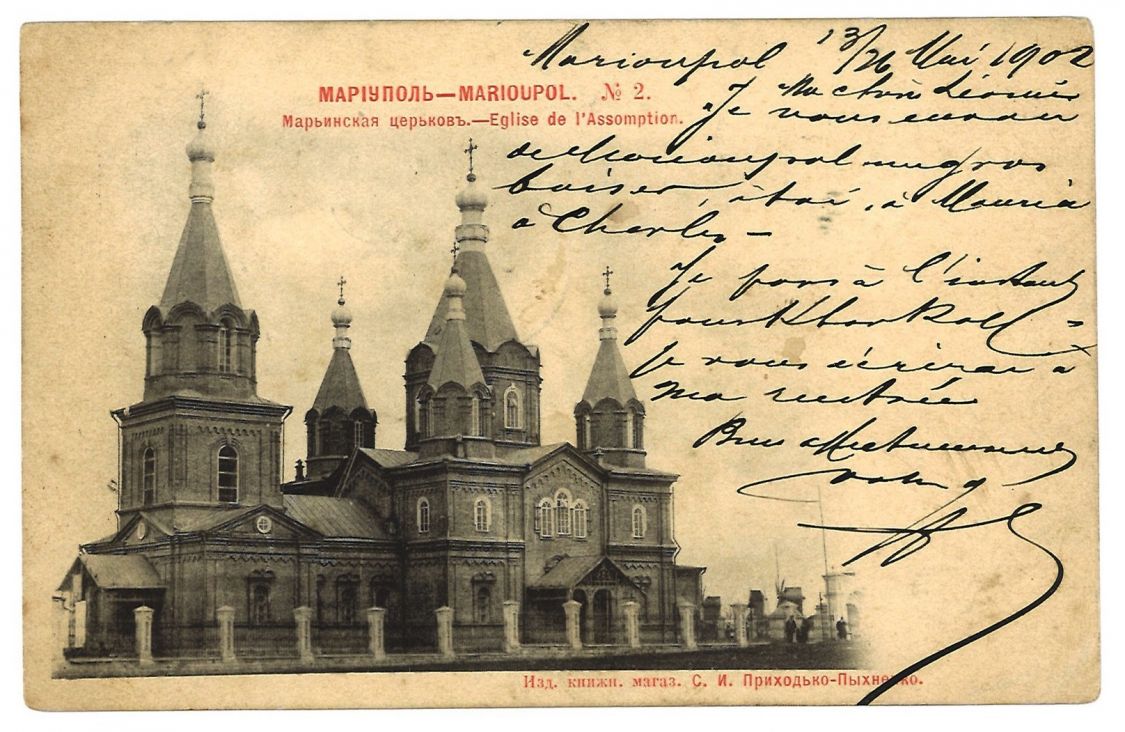 МАРІУПОЛЬ—MARIOUPOL. № 2.
Марьинская церьковъ.—Eglise de l'Assomption.
Marioupol 13/26 Mai 1902
Ma chère
Je vous envoie
de Marioupol un gros
baiser, à toi, à
à Charles —
Je pars à l'instant
pour Kharkoff
Je vous écrirai à
ma rentrée
Bien affectueusement
Изд. книжн. магаз. С. И. Приходько-Пыхненко.